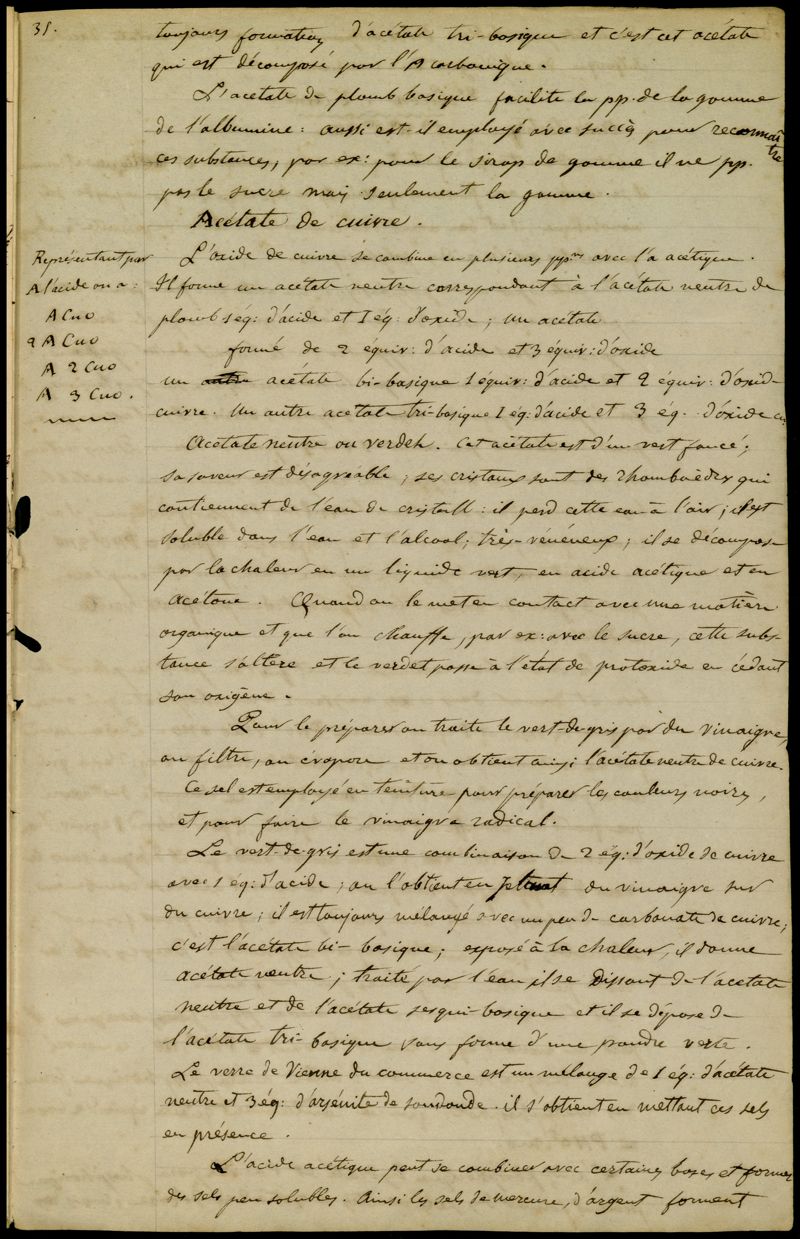 35.
toujours formation d'acétate tri-basique et c'est cet acétate
qui est décomposé par l'A carbonique.
L'acétate de plomb basique facilite la pp. de la gomme
de l'albumine : aussi est-il employé avec succès pour reconnaître
ces substances, par ex: pour le sirop de gomme il ne pp.
pas le sucre mais seulement la gomme.
Acétate de cuivre.
Représentant par
A l'acide on a :
A Cuo
2 A Cuo
A 2 Cuo
A 3 Cuo.
L'oxide de cuivre se combine en plusieurs ppons avec l'a acétique.
Il forme un acétate neutre correspondant à l'acétate neutre de
plomb 1 eq: d'acide et 1 éq: d'oxide ; un acétate
formé de 2 équiv: d'acide et 3 équiv: d'oxide
un autre acétate bi-basique 1 équiv: d'acide et 2 équiv: d'oxide
cuivre. Un autre acétate tri-basique 1 eq: d'acide et 3 éq. d'óxide
Acétate neutre ou verdet. Cet acétate est d'un vert foncé ;
sa saveur est désagréable ; ses cristaux sont des rhomboèdres qui
contiennent de l'eau de cristall : il perd cette eau à l'air ; il est
soluble dans l'eau et l'alcool ; très-vénéneux ; il se décompose
par la chaleur en un liquide vert, en acide acétique et en
acétone. Quand on le met en contact avec une matière
organique et que l'on chauffe, par ex: avec le sucre, cette subs-
tance s'altère et le verdet passe à l'état de protoxide en cédant
son oxigène.
Pour le préparer on traite le vert-de-gris par du vinaigre,
on filtre, on évapore et on obtient ainsi l'acétate neutre de cuivre.
Ce sel est employé en teinture pour préparer les couleurs noires,
et pour faire le vinaigre radical.
Le vert-de-gris est une combinaison de 2 éq: d'oxide de cuivre
avec 1 éq: d'acide ; on l'obtient en du vinaigre sur
du cuivre ; il est toujours mélangé avec un peu de carbonate de cuivre ;
c'est l'acétate bi-basique ; exposé à la chaleur, il donne
acétate neutre ; traité par l'eau il se dissout de l'acétate
neutre et de l'acétate sesqui-basique et il se dépose de
l'acétate tri-basique sous forme d'une poudre verte.
Le verre de Vienne du commerce est un mélange de 1 éq: d'acétate
neutre et 3 éq: d'arsénite de il s'obtient en mettant ces sels
en présence.
L'acide acétique peut se combiner avec certaines bases et former
des sels peu solubles. Ainsi les sels de mercure, d'argent forment